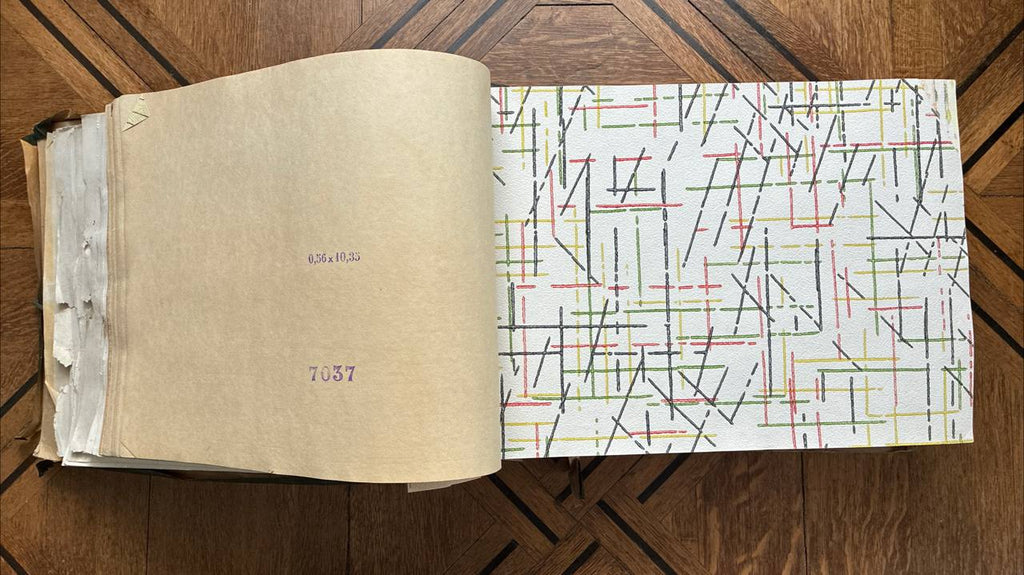 0,56 x 10,35
7037